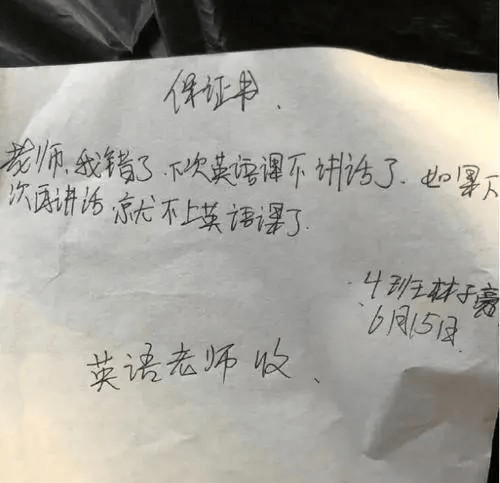 保证书.
老师,我错了.下次英语课不讲话了.如果下
次再讲话.就不上英语课了.
4班林子豪
6月15日.
英语老师收.